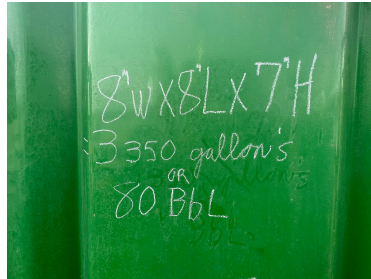 8"W X 8"L X 7"H
3350 gallon's
OR
80 BbL